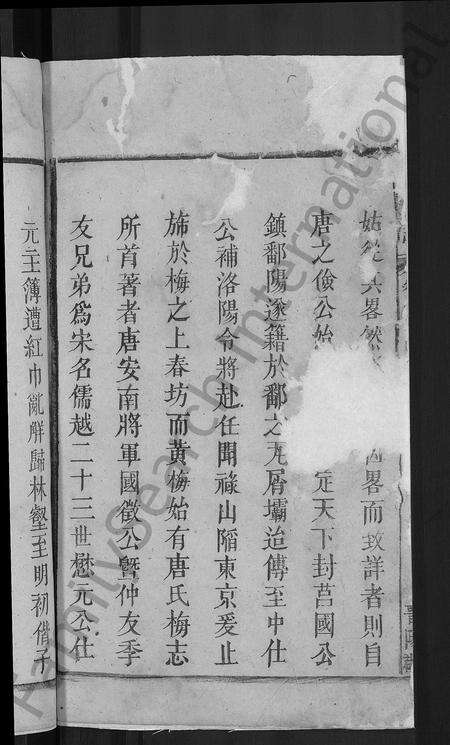 姑從其畧然 因畧而致詳者則自
唐之儉公始 定天下封莒國公
鎮鄱陽遂籍於鄱之瓦屑壩迨傳至中仕
公補洛陽令將赴任聞祿山陷東京爰止
斾於梅之上春坊而黃梅始有唐氏梅志
所首著者唐安南將軍國徵公暨仲友季
友兄弟爲宋名儒越二十三世懋元公仕
元主簿遭紅巾亂解歸林壑至明初偕子
FamilySearch International